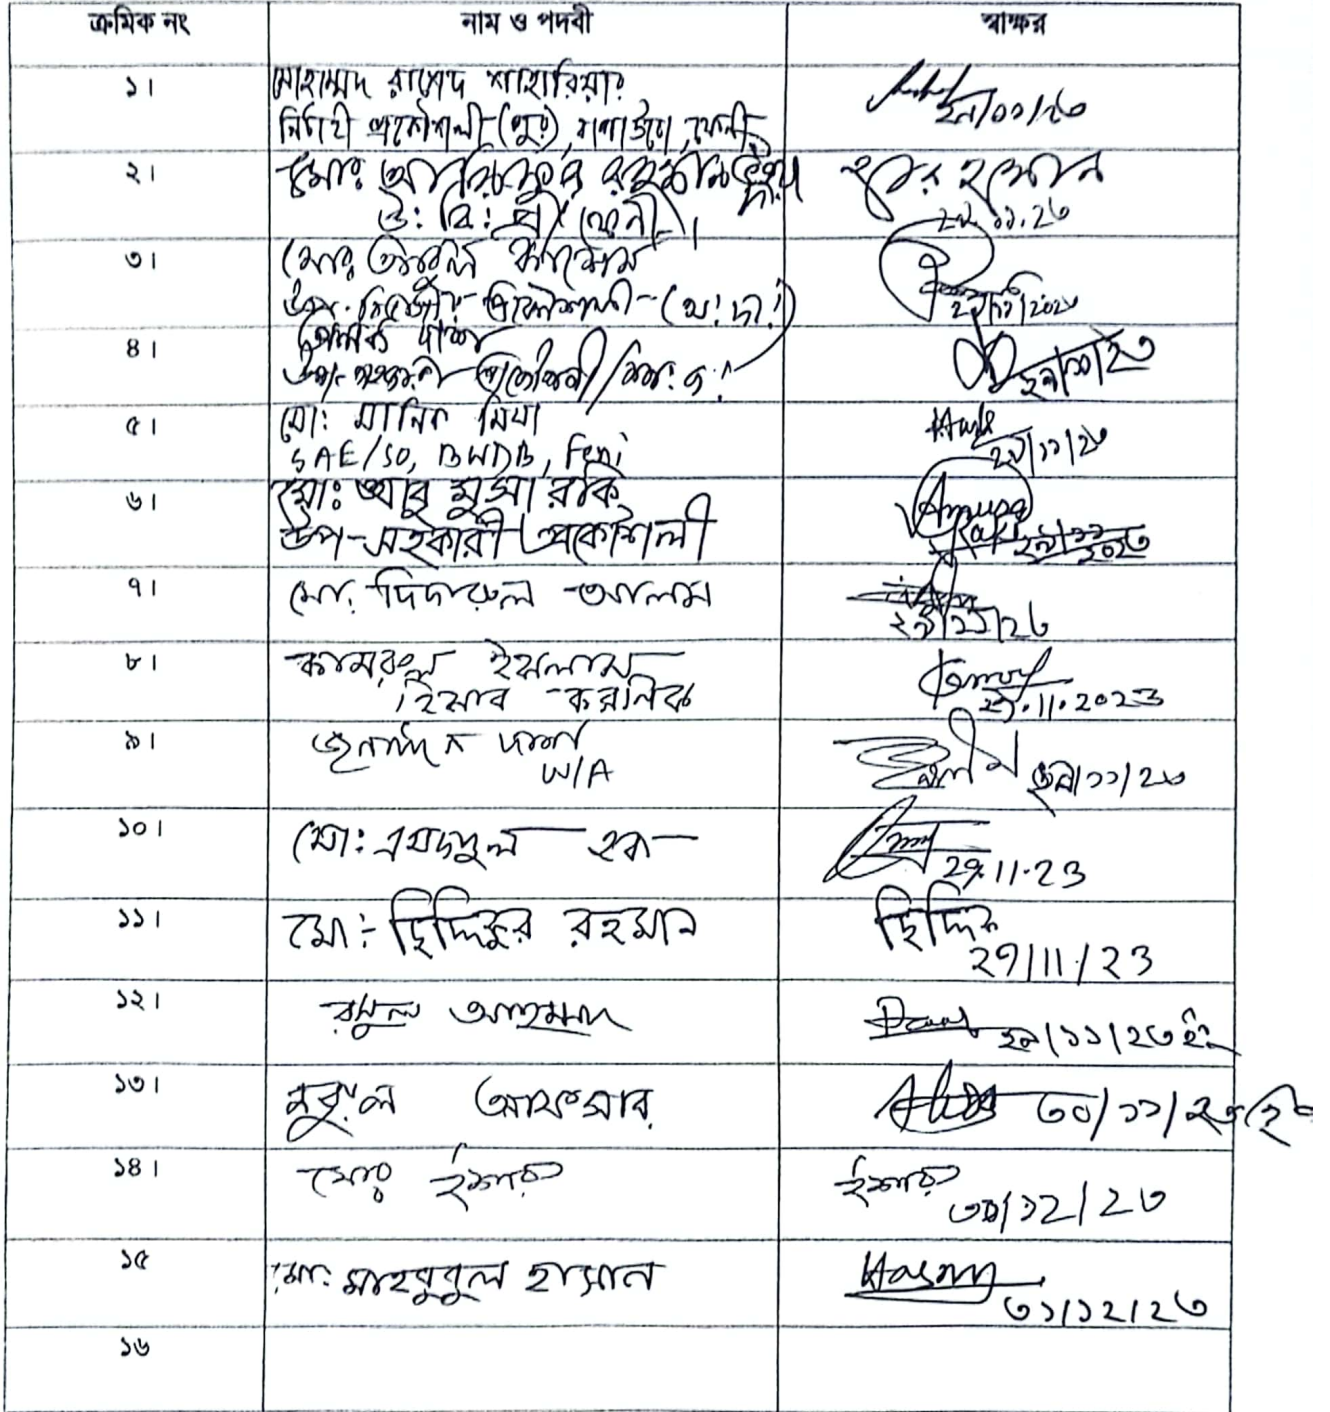 ক্রমিক নং নাম ও পদবী স্বাক্ষর
১। মোহাম্মদ রাশেদ শাহারিয়ার
নির্বাহী প্রকৌশলী (পুর), বাপাউবো, ফেনী
২৯/১১/২৩
২। মোঃ রহমান
উঃ বিঃ প্রঃ ফেনী।
২৯.১১.২৩
৩। মোঃ আবুল কাশেম
উপ-বিভাগীয় প্রকৌশলী (অঃ দাঃ)
২৯/১১/২০২৩
৪। দাশ
উপ-সহকারী প্রকৌশলী/
২৯/১১/২৩
৫। মোঃ মানিক মিয়া
SAE/SO, BWDB, Feni
২৯/১১/২৩
৬। মোঃ আবু মুসা রকি
উপ-সহকারী প্রকৌশলী
২৯/১১/২০২৩
৭। মোঃ দিদারুল আলম
২৯/১১/২৩
৮। কামরুল ইসলাম
হিসাব করনিক
২৯.11.2023
৯। দাশ
W/A
২৯/১১/২৩
১০। মোঃ এমদাদুল হক
29.11.23
১১। মোঃ ছিদ্দিকুর রহমান ছিদ্দিক
29/11/23
১২। আহমদ
২৯/১১/২৩ ইং
১৩। নুরুল আফসার ৩০/১১/২৩ইং
১৪।
/১২/২৩
১৫ মোঃ মাহবুবুল হাসান Hasan
৩১/১২/২৩
১৬